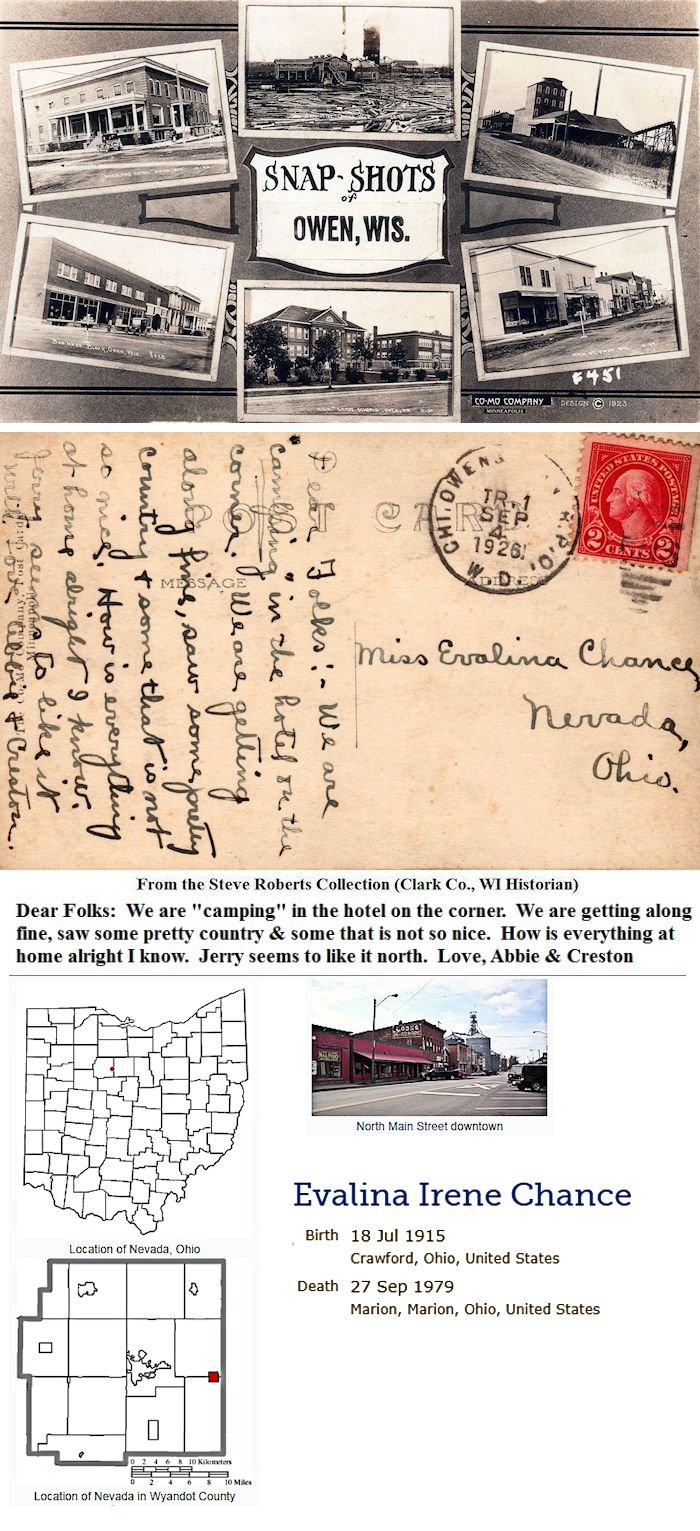 SNAP-SHOTS
of
OWEN, WIS.
WOODLAND HOTEL OWEN, WIS.
BUSINESS BLOCK, OWEN, WIS.
HIGH & GRADE SCHOOLS, OWEN, WIS.
MAIN ST. OWEN, WIS.
F451
CO-MO COMPANY
MINNEAPOLIS
DESIGN © 1923
POST CARD
MESSAGE
ADDRESS
CHI. OWEN &
R.P.O.
TR. 1
SEP
4
1926
W. D.
UNITED STATES POSTAGE
2 CENTS 2
Dear Folks:- We are
camping in the hotel on the
corner. We are getting
along fine, saw some pretty
country & some that is not
so nice. How is everything
at home alright I know.
Jerry seems to like it
north. Love, Abbie & Creston.
Miss Evalina Chance,
Nevada,
Ohio.
From the Steve Roberts Collection (Clark Co., WI Historian)
Dear Folks: We are "camping" in the hotel on the corner. We are getting along
fine, saw some pretty country & some that is not so nice. How is everything at
home alright I know. Jerry seems to like it north. Love, Abbie & Creston
Location of Nevada, Ohio
North Main Street downtown
Evalina Irene Chance
Birth 18 Jul 1915
Crawford, Ohio, United States
Death 27 Sep 1979
Marion, Marion, Ohio, United States
0 2 4 6 8 10 Kilometers
0 2 4 6 8 10 Miles
Location of Nevada in Wyandot County